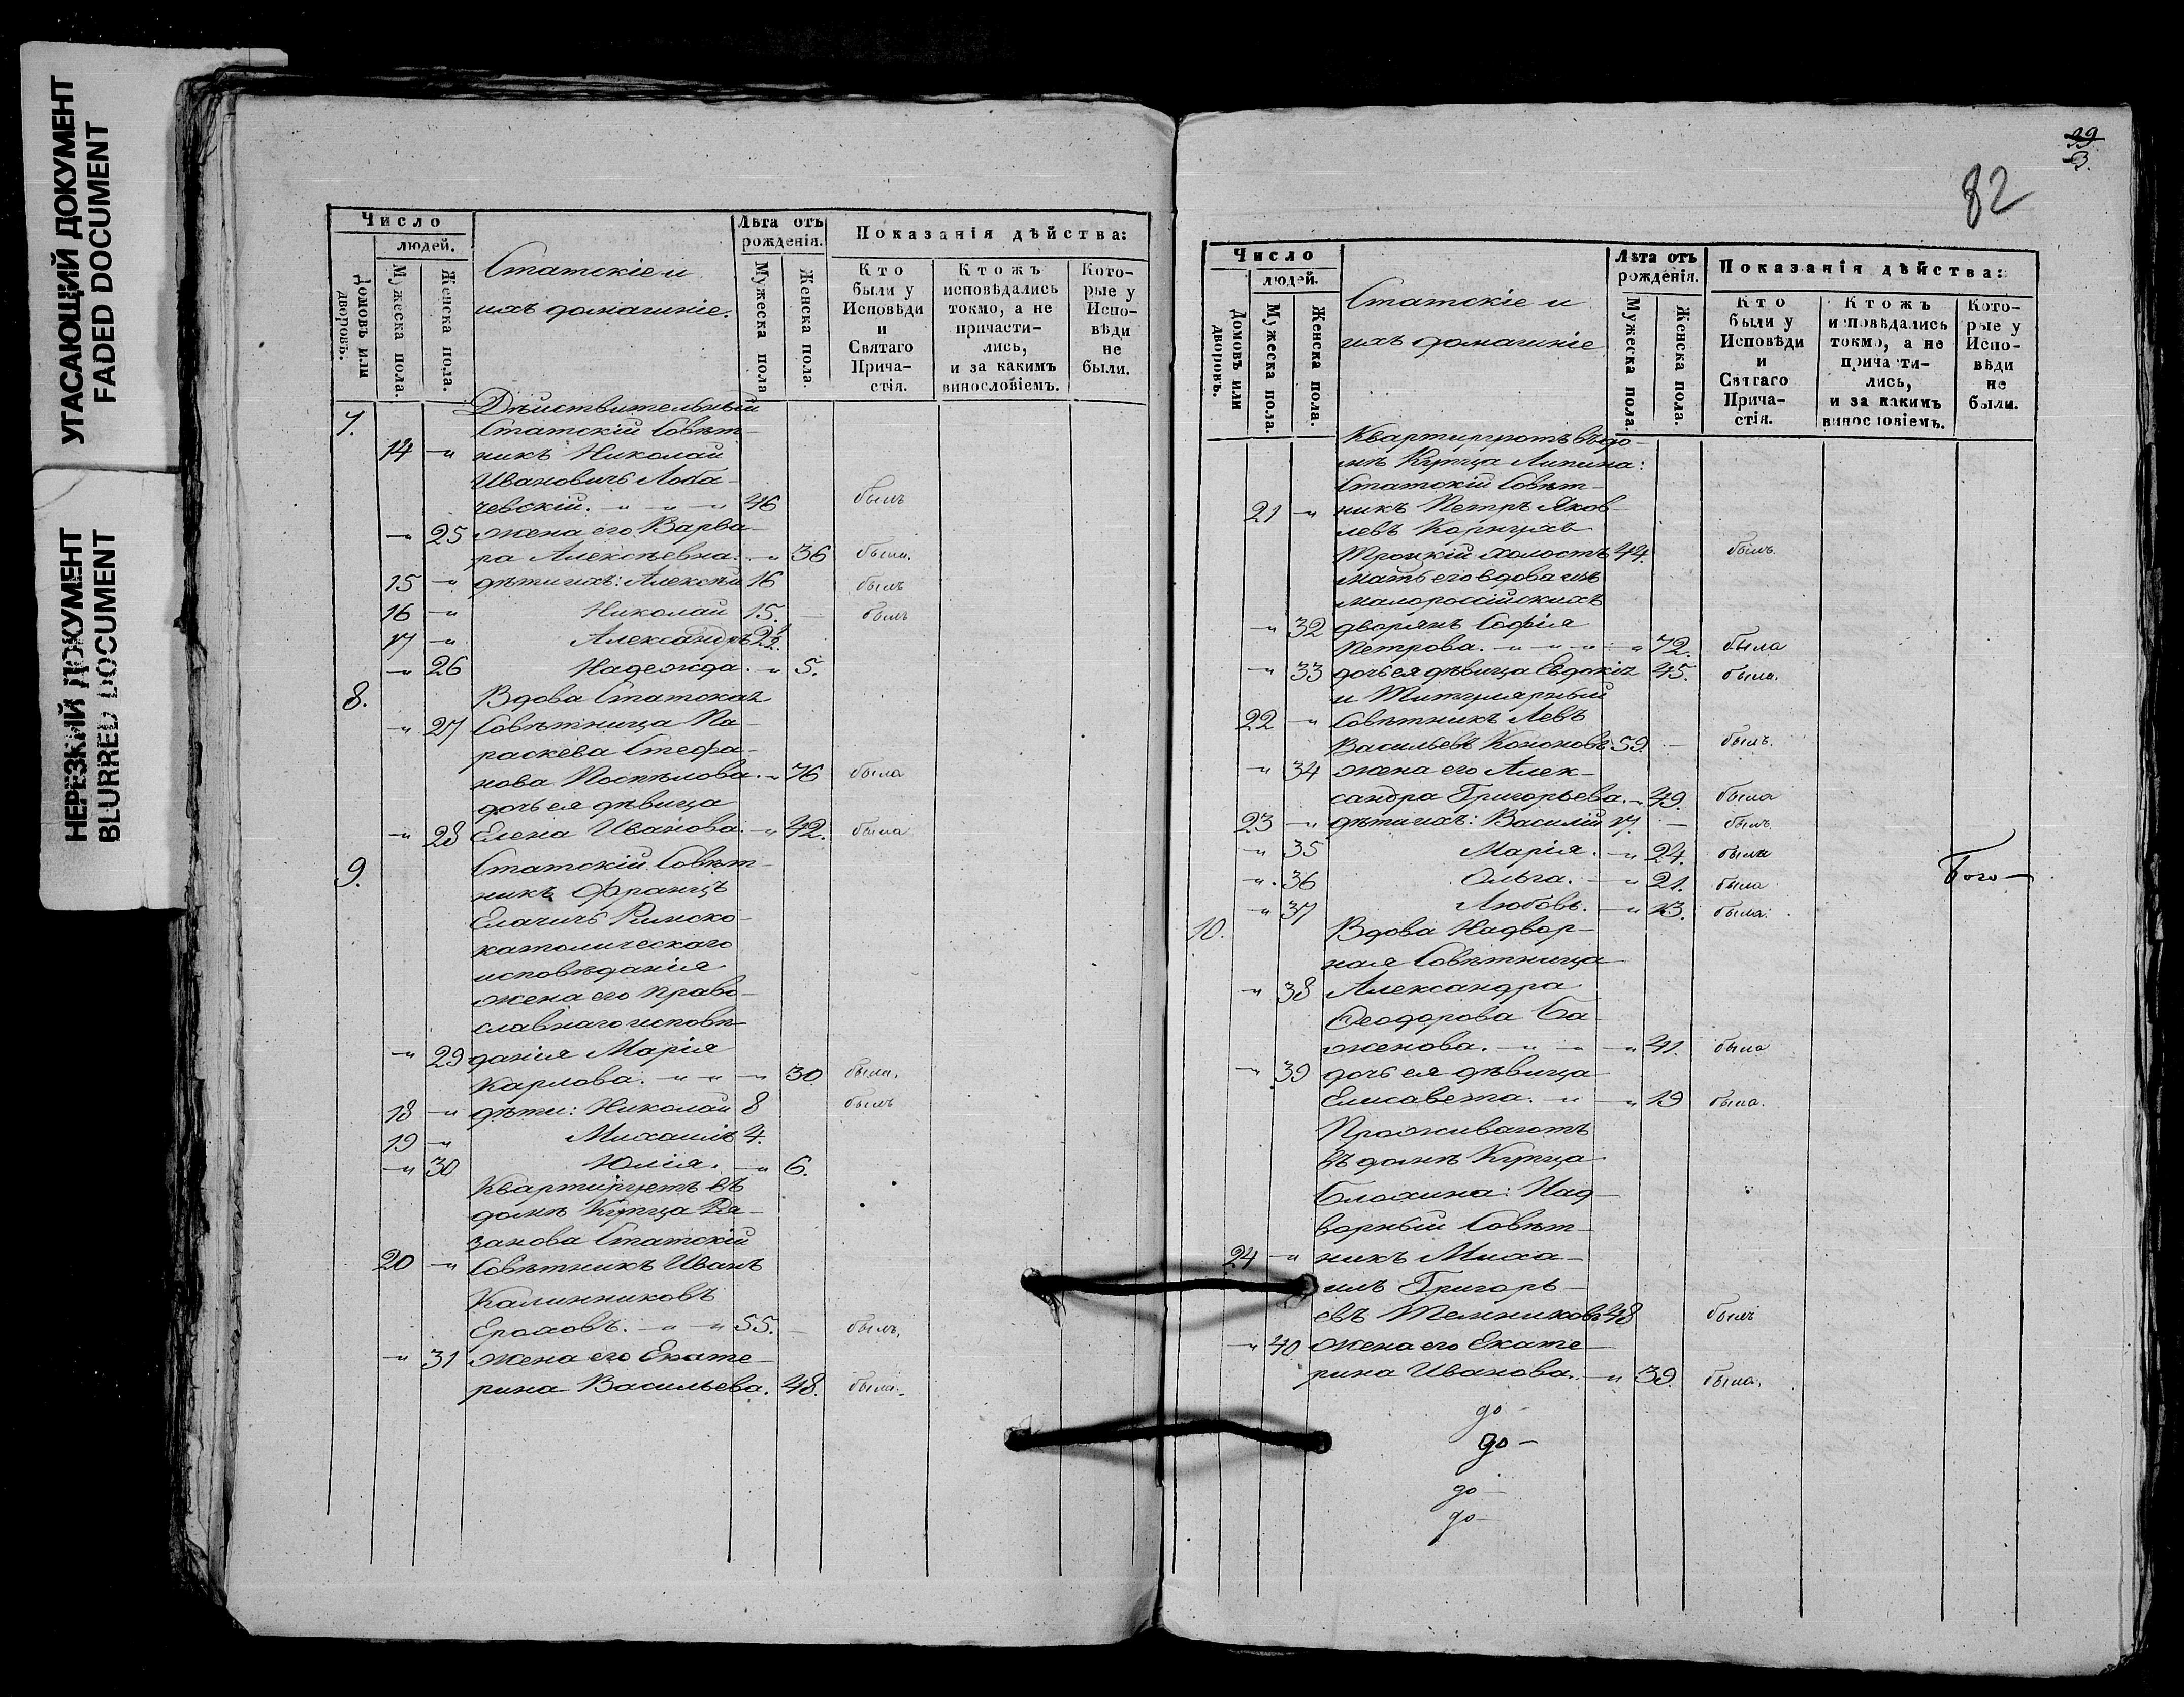 УГАСАЮЩИЙ ДОКУМЕНТ
FADED DOCUMENT
НЕРЕЗКИЙ ДОКУМЕНТ
BLURRED DOCUMENT
Число
людей.
Домовъ или дворовъ.
Мужеска пола.
Женска пола.
Статскіе и
ихъ домашніе.
Лѣта отъ
рожденія.
Мужеска пола
Женска пола.
Показанія дѣйства:
Кто
были у
Исповѣди
и
Святаго
Прича-
стія.
Ктожъ
исповѣдались
токмо, а не
причасти-
лись,
и за какимъ
винословіемъ.
Кото-
рые у
Испо-
вѣди
не
были.
7. Дѣйствительный
Статскій Совѣт-
14 -„ никъ Николай
Ивановичъ Лоба-
чевскій. -„ -„ -„ 46 былъ
-„ 25 жена его Варва-
ра Алексѣевна. -„ 36 была.
15 -„ дѣти ихъ: Алексѣй 16 былъ
16 -„ Николай 15. - былъ
17 -„ Александръ
-„ 26 Надежда. -„ 5.
8. Вдова Статская
-„ 27 Совѣтница Па-
раскева Стефа-
нова Поспѣлова. -„ 76 была
дочь ея дѣвица
-„ 28 Елена Иванова. -„ 42. была
9. Статскій Совѣт-
никъ Францъ
Елачичъ Римско-
католическаго
исповѣданія
жена его право-
славнаго исповѣ-
-„ 29 данія Марія
Карлова. -„ -„ -„ 30 была.
18 -„ дѣти: Николай 8 былъ
19 -„ Михаилъ 4.
-„ 30 Юлія. -„ 6.
Квартируетъ въ
домѣ Купца Ря-
занова Статскій
20 -„ Совѣтникъ Иванъ
Калинниковъ
Ероховъ. -„ -„ 55. - былъ.
-„ 31 жена его Екате-
рина Васильева. 48. была.
39
3.
82
Число
людей.
Домовъ или дворовъ.
Мужеска пола.
Женска пола.
Статскіе и
ихъ домашніе
Лѣта отъ
рожденія.
Мужеска пола.
Женска пола.
Показанія дѣйства:
Кто
были у
Исповѣди
и
Святаго
Прича-
стія.
Ктожъ
исповѣдались
токмо, а не
причасти-
лись,
и за какимъ
винословіемъ.
Кото-
рые у
Испо-
вѣди
не
были.
Квартируютъ въ до-
мѣ Купца Липина:
Статскій Совѣт-
21 -„ никъ Петръ Яков-
левъ Корнухъ
Троцкій холостъ 44. былъ.
мать его вдова изъ
малороссійскихъ
-„ 32 дворянъ Софія
Петрова. -„ -„ -„ -„ 72. была
-„ 33 дочь ея дѣвица Евдокія 45. была.
и Титулярный
22 -„ Совѣтникъ Левъ
Васильевъ Кононовъ 59. - былъ.
-„ 34 жена его Алек-
сандра Григорьева. -„ 49. была
23 -„ дѣти ихъ: Василій 17. - былъ.
-„ 35 Марія. -„ 24. была
-„ 36 Ольга. -„ 21. была
-„ 37 Любовь. -„ 13. была.
Бого-
10. Вдова Надвор-
ная Совѣтница
-„ 38 Александра
Ѳеодорова Ба-
женова. -„ -„ -„ 41. была
-„ 39 дочь ея дѣвица
Елисавета. -„ -„ 19 была.
Проживаютъ
въ домѣ Купца
Блохина: Над-
ворный Совѣт-
24 -„ никъ Миха-
илъ Григорь-
евъ Темниковъ 48 былъ
-„ 40 жена его Екате-
рина Иванова. -„ 39. была.
до-
до-
до-
до-